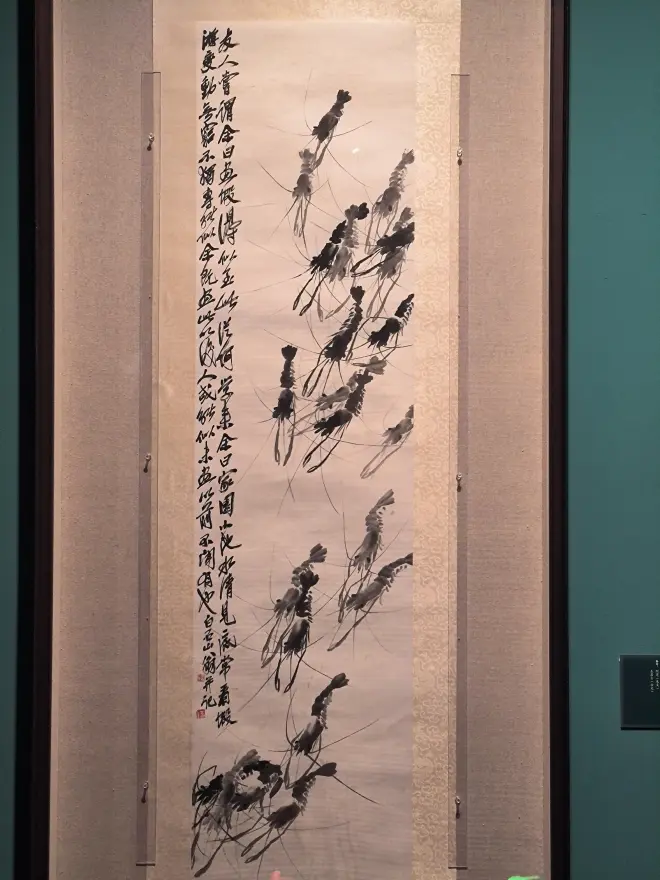 友人嘗謂余曰畫蝦得似至此從何學來余曰家園小池水清見底常看蝦
游變動無窮不獨專能似余既畫此以後人或能似未畫以前不聞有也白石山翁并記